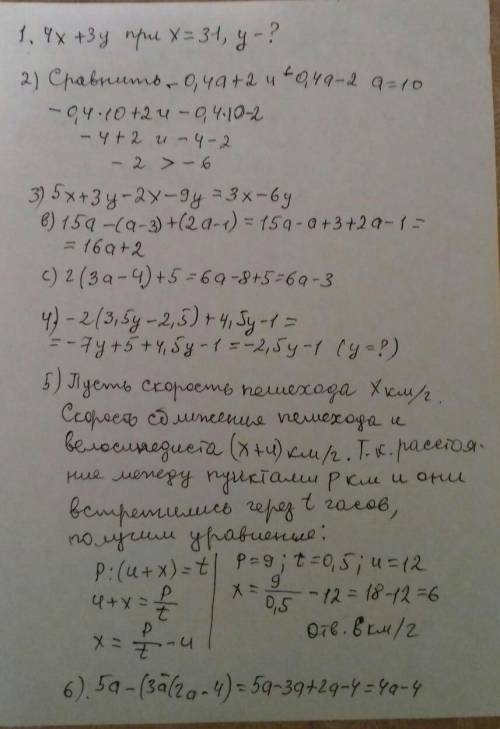 1. 4x + 3y при x = 31, y - ?
2) Сравнить -0,4a+2 и -0,4a-2 a=10
-0,4·10+2 и -0,4·10-2
-4+2 и -4-2
-2 > -6
3) 5x+3y-2x-9y=3x-6y
в) 15a-(a-3)+(2a-1)=15a-a+3+2a-1=
=16a+2
с) 2(3a-4)+5=6a-8+5=6a-3
4) -2(3,5y-2,5)+4,5y-1=
=-7y+5+4,5y-1=-2,5y-1 (y=?)
5) Пусть скорость пешехода x км/г.
Скорость сближения пешехода и
велосипедиста (x+u) км/г. Т.к. расстоя-
ние между пунктами p км и они
встретились через t часов,
получим уравнение:
p:(u+x)=t
u+x=p/t
x=p/t-u
p=9; t=0,5; u=12
x=9/0,5-12=18-12=6
Отв. 6 км/г
6). 5a-(3a-(2a-4)=5a-3a+2a-4=4a-4